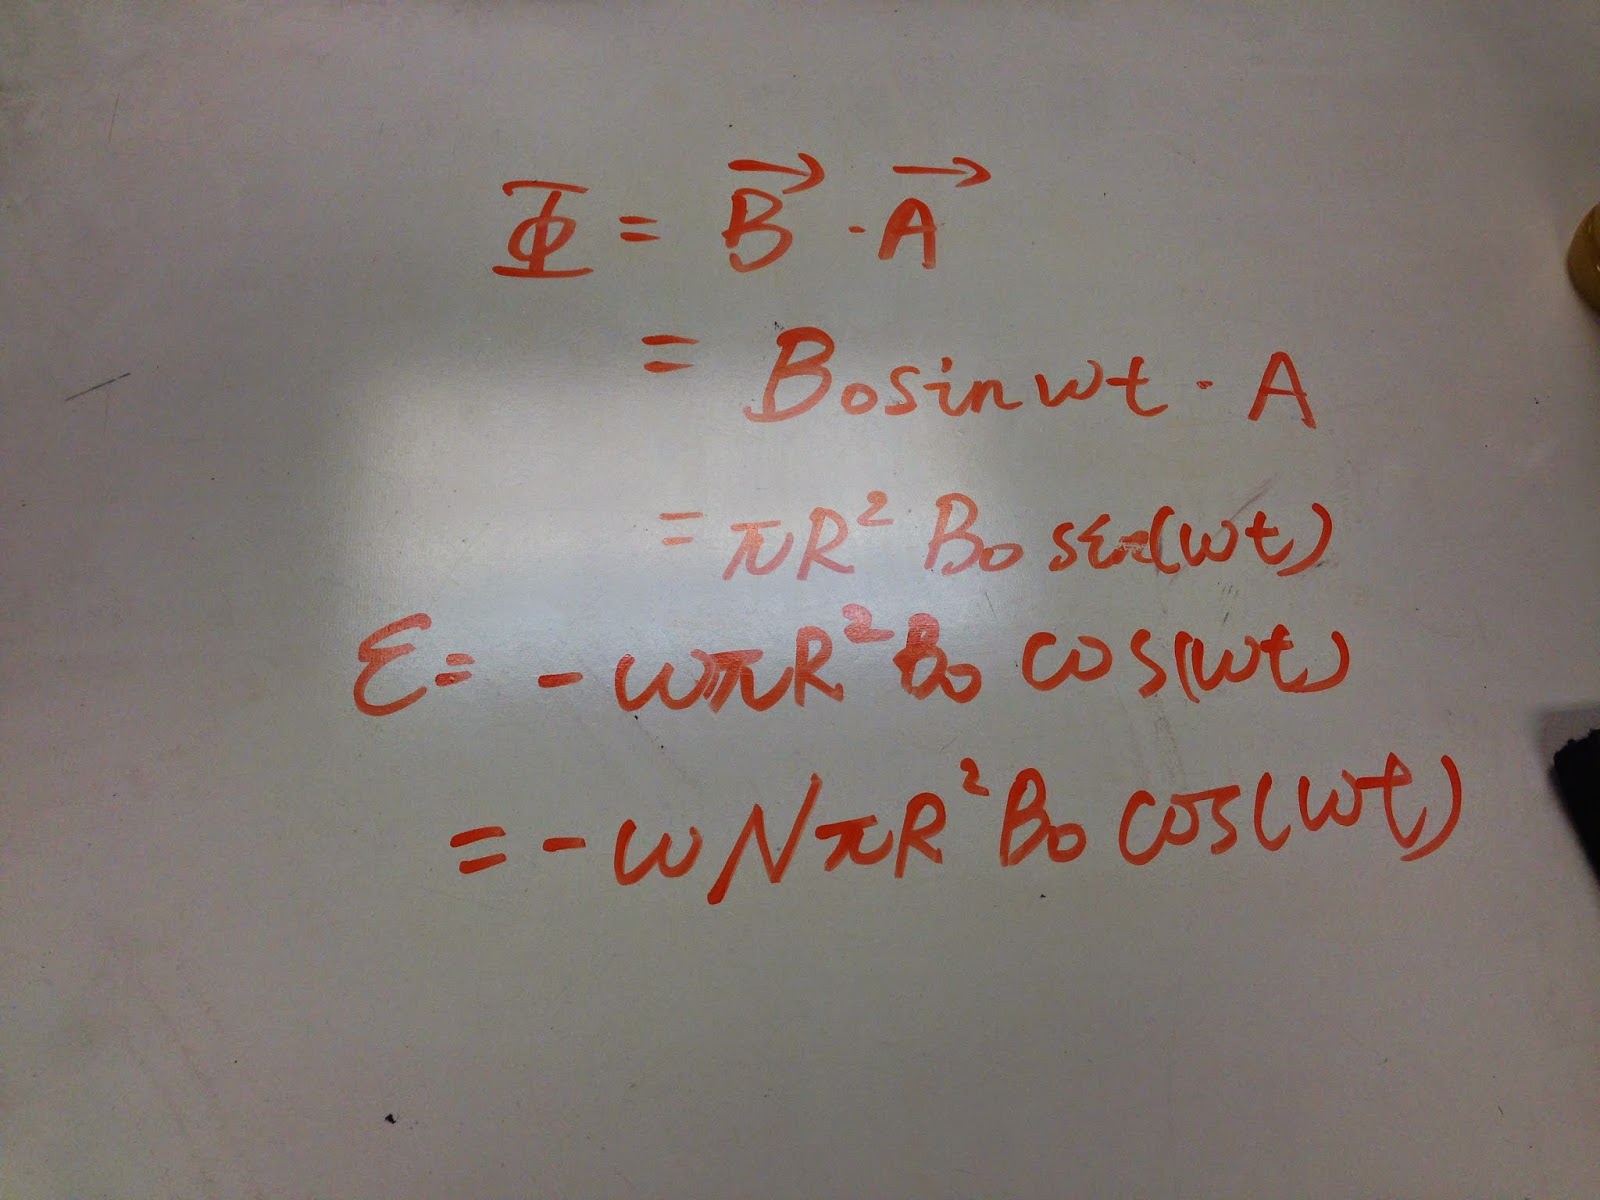 Φ = B⃗ · A⃗
= B₀sinωt · A
= πR² B₀ sin(ωt)
ε = - ωπR²B₀ cos(ωt)
= - ωNπR²B₀ cos(ωt)